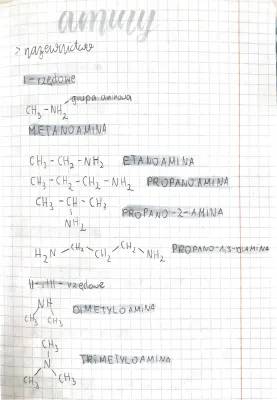 aminy
> nazewnictwo
I-rzędowe
grupa aminowa
CH₃-NH₂
METANOAMINA
CH₃-CH₂-NH₂ ETANOAMINA
CH₃-CH₂-CH₂-NH₂ PROPANOAMINA
CH₃-CH-CH₃
NH₂ PROPANO-2-AMINA
H₂N CH₂ CH₂ CH₂ NH₂ PROPANO-1,3-DIAMINA
II-III-rzędowe
NH
CH₃ CH₃ DIMETYLOAMINA
CH₃
N TRIMETYLOAMINA
CH₃ CH₃